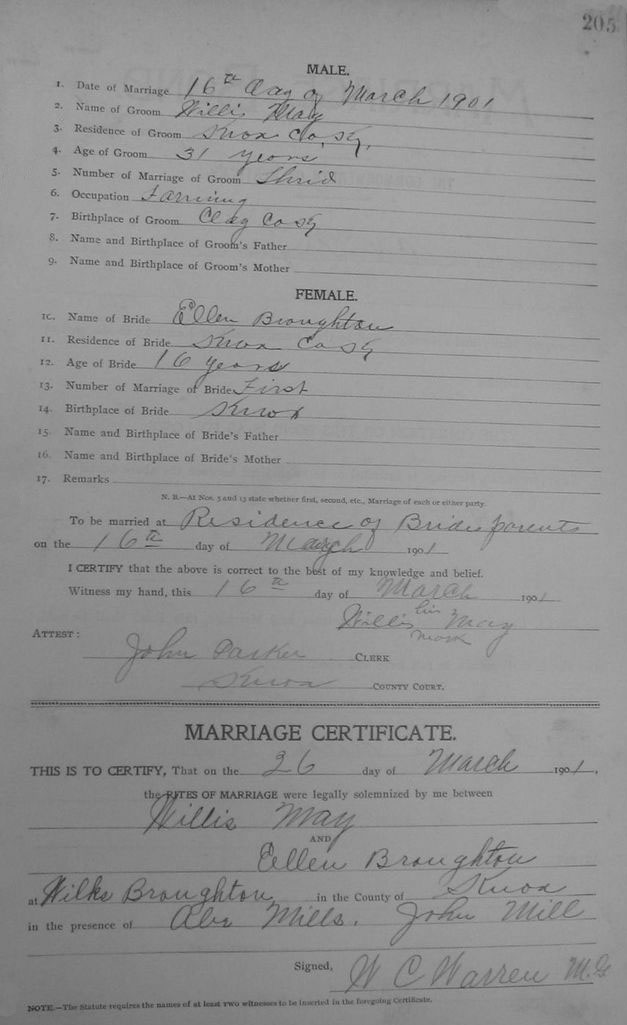 205
MALE.
1. Date of Marriage 16th day of March 1901
2. Name of Groom Willis May
3. Residence of Groom Knox Co, Ky,
4. Age of Groom 31 years
5. Number of Marriage of Groom Thrid
6. Occupation Farming
7. Birthplace of Groom Clay Co Ky
8. Name and Birthplace of Groom's Father
9. Name and Birthplace of Groom's Mother
FEMALE.
10. Name of Bride Ellen Broughton
11. Residence of Bride Knox Co Ky
12. Age of Bride 16 years
13. Number of Marriage of Bride First
14. Birthplace of Bride Knox
15. Name and Birthplace of Bride's Father
16. Name and Birthplace of Bride's Mother
17. Remarks
N. B.—At Nos. 5 and 13 state whether first, second, etc., Marriage of each or either party.
To be married at Residence of Brides parents
on the 16th day of March 1901
I CERTIFY that the above is correct to the best of my knowledge and belief.
Witness my hand, this 16th day of March 1901
Willis his May
mark
ATTEST:
John Parker CLERK
Knox COUNTY COURT.
MARRIAGE CERTIFICATE.
THIS IS TO CERTIFY, That on the 26 day of March 1901,
the RITES OF MARRIAGE were legally solemnized by me between
Willis May
AND
Ellen Broughton
at Wilks Broughton in the County of Knox
in the presence of Abe Mills. John Mill
Signed, W C Warren M.G
NOTE.—The Statute requires the names of at least two witnesses to be inserted in the foregoing Certificate.